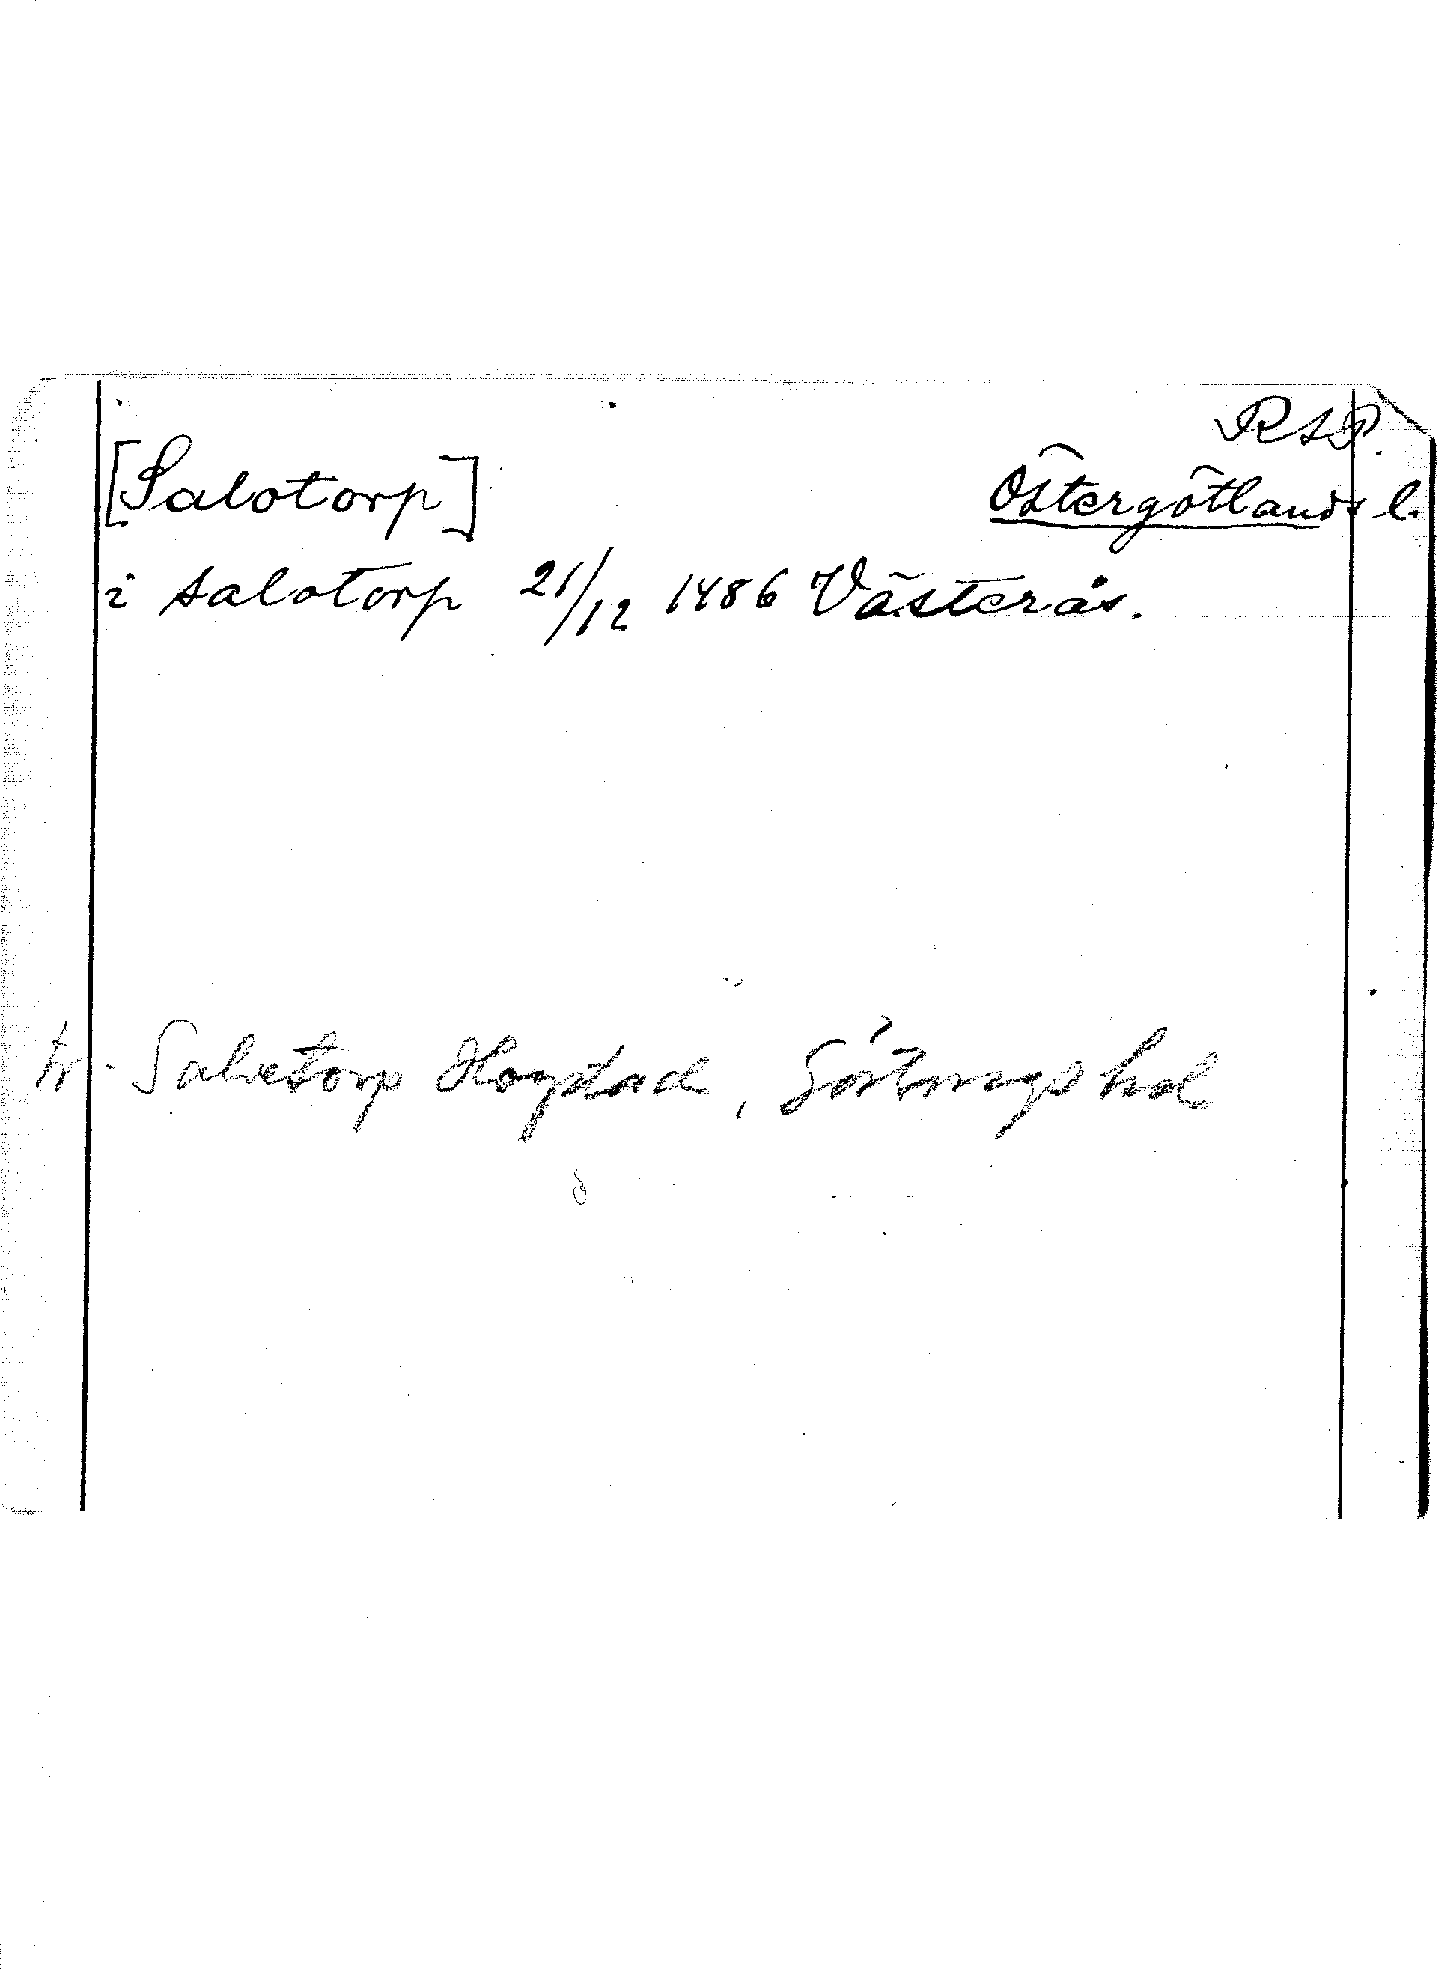 RAP.
[Salotorp]
Östergötlands l.
i salotorp 21/12 1486 Västerås.
tr. Salvetorp Hogstad, Göstrings hd